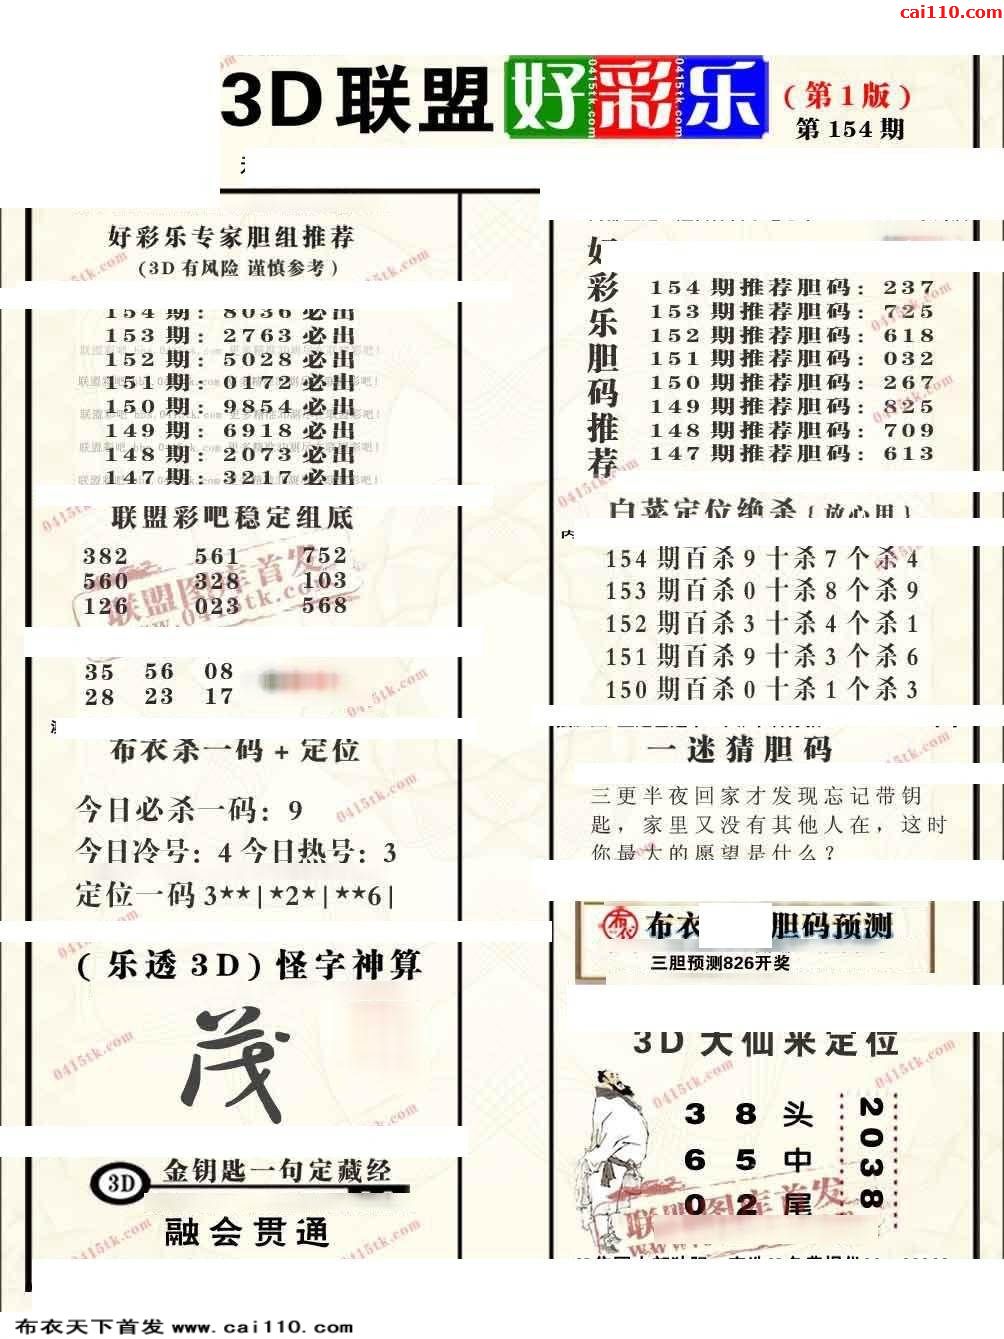 cai110.com
3D联盟 好彩乐
(第1版)
第154期
好彩乐专家胆组推荐
(3D有风险 谨慎参考)
154期: 8036必出
153期: 2763必出
152期: 5028必出
151期: 0172必出
150期: 9854必出
149期: 6918必出
148期: 2073必出
147期: 3217必出
联盟彩吧稳定组底
382 561 752
560 328 103
126 023 568
35 56 08
28 23 17
布衣杀一码+定位
今日必杀一码: 9
今日冷号: 4 今日热号: 3
定位一码3**|*2*|**6|
(乐透3D)怪字神算
茂
3D 金钥匙一句定藏经
融会贯通
好彩乐胆码推荐
154期推荐胆码: 237
153期推荐胆码: 725
152期推荐胆码: 618
151期推荐胆码: 032
150期推荐胆码: 267
149期推荐胆码: 825
148期推荐胆码: 709
147期推荐胆码: 613
白菜定位绝杀{放心用}
154期百杀9十杀7个杀4
153期百杀0十杀8个杀9
152期百杀3十杀4个杀1
151期百杀9十杀3个杀6
150期百杀0十杀1个杀3
一迷猜胆码
三更半夜回家才发现忘记带钥
匙，家里又没有其他人在，这时
你最大的愿望是什么？
布衣 胆码预测
三胆预测826开奖
3D大仙来定位
3 8 头
6 5 中
0 2 尾
2038
联盟图库首发
www.0415tk.com
0415tk.com
布衣天下首发 www.cai110.com